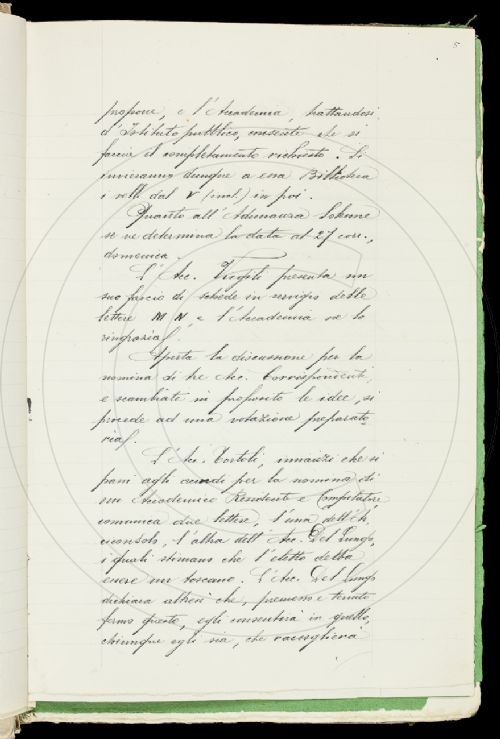 5
propone, e l'Accademia, trattandosi
d'Istituto pubblico, consente che si
faccia il completamento richiesto. Si
invieranno dunque a essa Biblioteca
i voll. dal V (incl.) in poi.
Quanto all'Adunanza Solenne
se ne determina la data al 27 corr.,
domenica.
L'Acc. presenta un
suo fascio di schede in servigio delle
lettere M N, e l'Accademia ne lo
ringrazia.
Aperta la discussione per la
nomina di tre Acc. Corrispondenti,
e scambiate in proposito le idee, si
procede ad una votazione preparato-
ria.
L'Acc. Tortoli, innanzi che si
passi agli accordi per la nomina di
un Accademico Residente e Compilatore
comunica due lettere, l'una dell'A.
, l'altra dell'Acc. Del Lungo,
i quali stimano che l'eletto debba
essere un toscano. L'Acc. Del Lungo
dichiara altresì che, premesso e tenuto
fermo questo, egli consentirà in quello,
chiunque egli sia, che raccoglierà